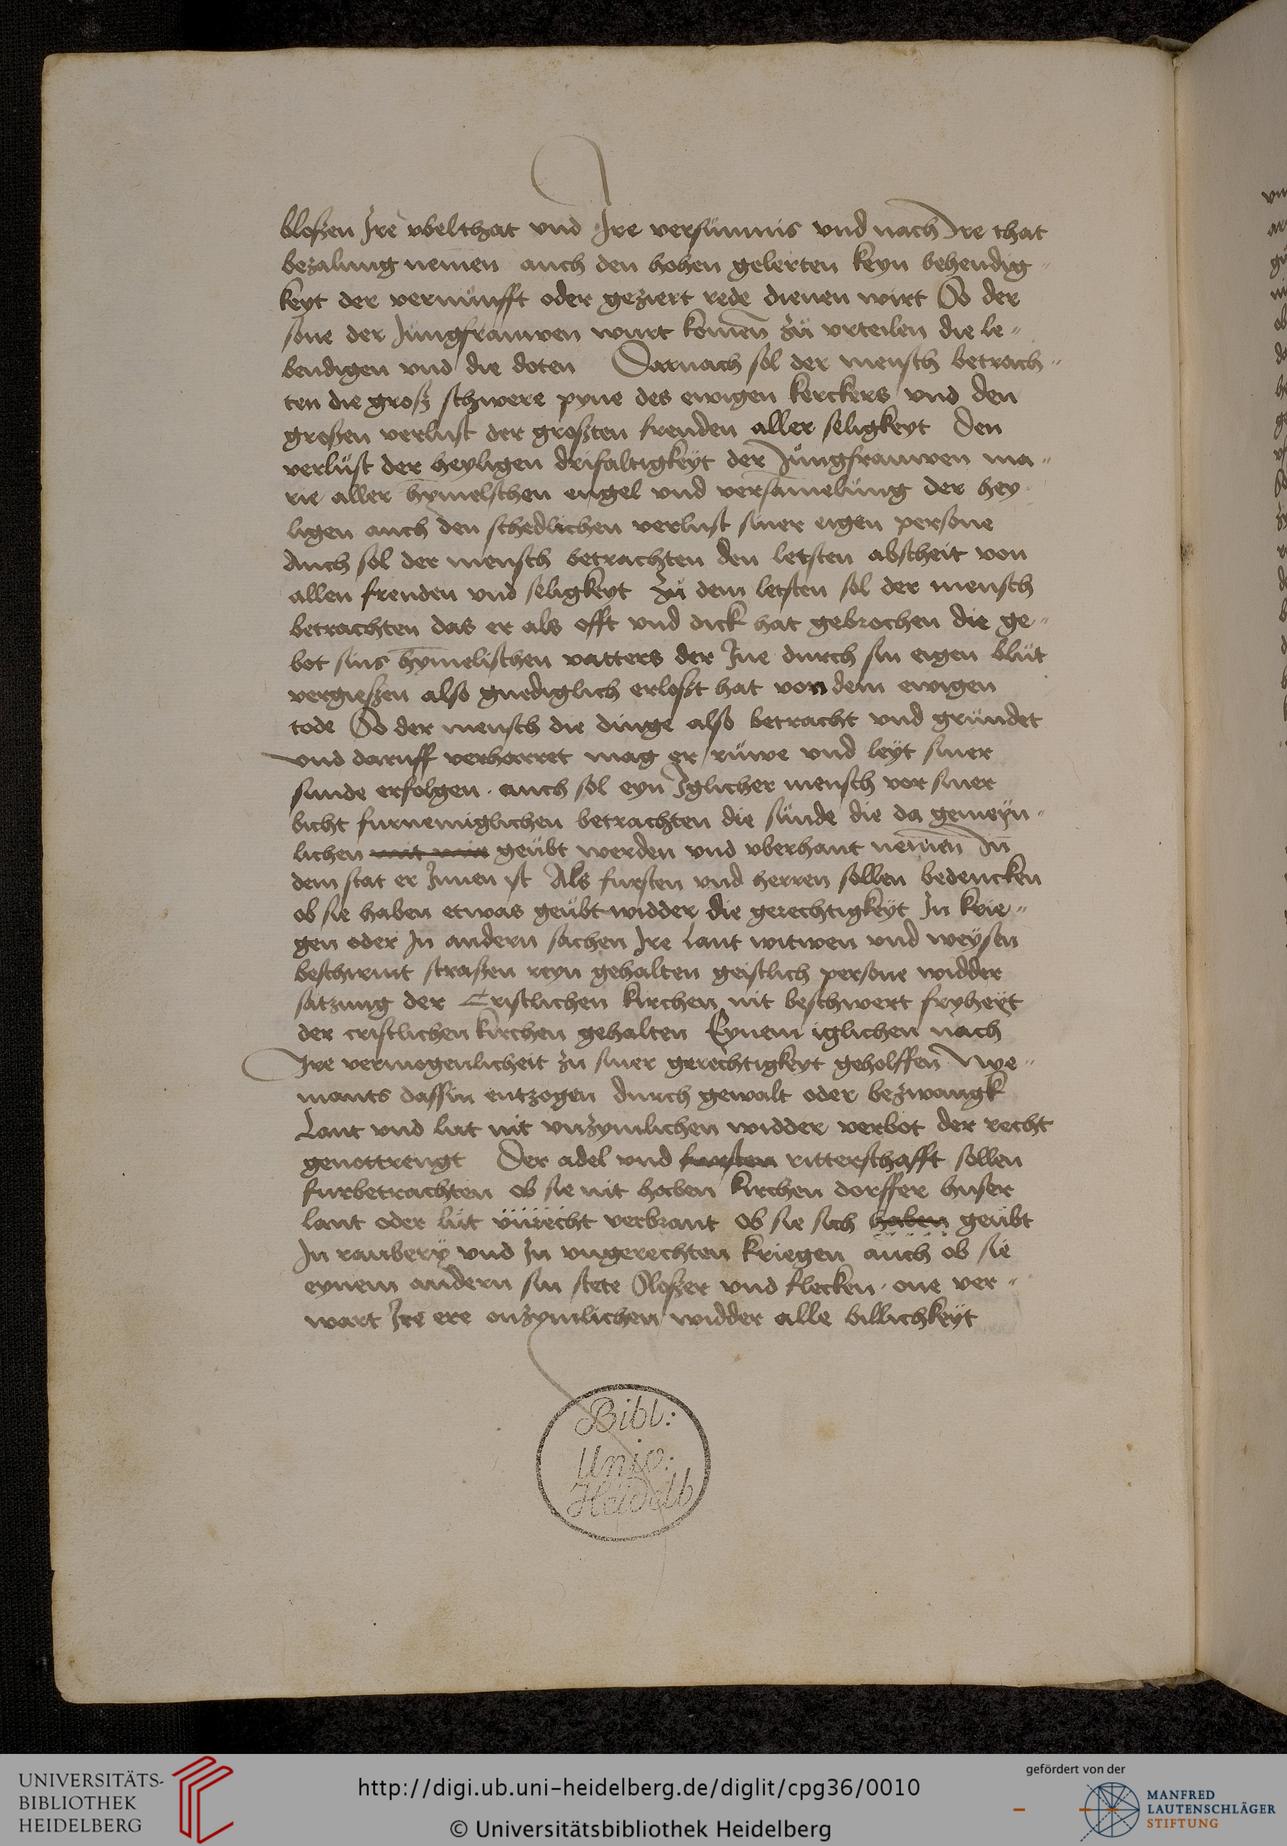 bloßen Ire vbelthat vnd Ire versümnis vnd nach Ire that
bezalung nemen auch den hohen gelerten keyn behendig
keyt der vernünfft oder geziert rede dienen wirt So der
sone der Jungfrauwen wurt komen zü vrteilen die le
bendigen vnd die doten Darnach sol der mensch betrach
ten die groß schwere pyne des ewigen kerckers vnd den
großen verlust der großten freuden aller seligkeyt Den
verlüst der heyligen drifaltigkeyt der Jüngfrauwen ma
rie aller hymelschen engel vnd versamelüng der hey
ligen auch den schedlichen verlust siner eigen persone
Auch sol der mensch betrachten den letsten abscheit von
allen freuden vnd seligkeyt zü dem letsten sol der mensch
betrachten das er als offt vnd dick hat gebrochen die ge
bot sins hymelischen vatters der Ine durch sin eigen blüt
vergießen also gnediglich erloßt hat von dem ewigen
tode So der mensch die dinge also betracht vnd gründet
vnd daruff verharret mag er rüwe vnd leyt siner
sunde erfolgen. auch sol eyn Iglicher mensch vor siner
bicht furnemiglichen betrachten die sünde die da gemeyn
lichen geübt werden vnd vberhant nemen In
dem stat er Innen ist Als fursten vnd herren sollen bedencken
ob sie haben etwas geübt widder die gerechtigkeyt In krie
gen oder In andern sachen Ire lant witwen vnd weysen
beschirmt straßen reyn gehalten geistlich persone widder
satzung der Cristlichen kirchen nit beschwert fryheyt
der cristlichen kirchen gehalten Eynem iglichen nach
Ire vermogenlicheit zu siner gerechtigkeyt geholffen Nye
mants dassin entzogen durch gewalt oder bezwangk
Lant vnd lut nit vnzymlichen widder verbot der recht
genottrengt Der adel vnd fursten ritterschafft sollen
furbetrachten ob sie nit haben kirchen dorffer huser
lant oder lüt vnrecht verbrant ob sie sich haben geübt
In rauberÿ vnd In vngerechten kriegen auch ob sie
eynem andern sin stete Sloßer vnd flecken. one ver
wart Ire ere onzymlichen widder alle billichkeyt
Bibl:
Univ:
Heidelb
UNIVERSITÄTS-
BIBLIOTHEK
HEIDELBERG
http://digi.ub.uni-heidelberg.de/diglit/cpg36/0010
© Universitätsbibliothek Heidelberg
gefördert von der
MANFRED
LAUTENSCHLÄGER
STIFTUNG